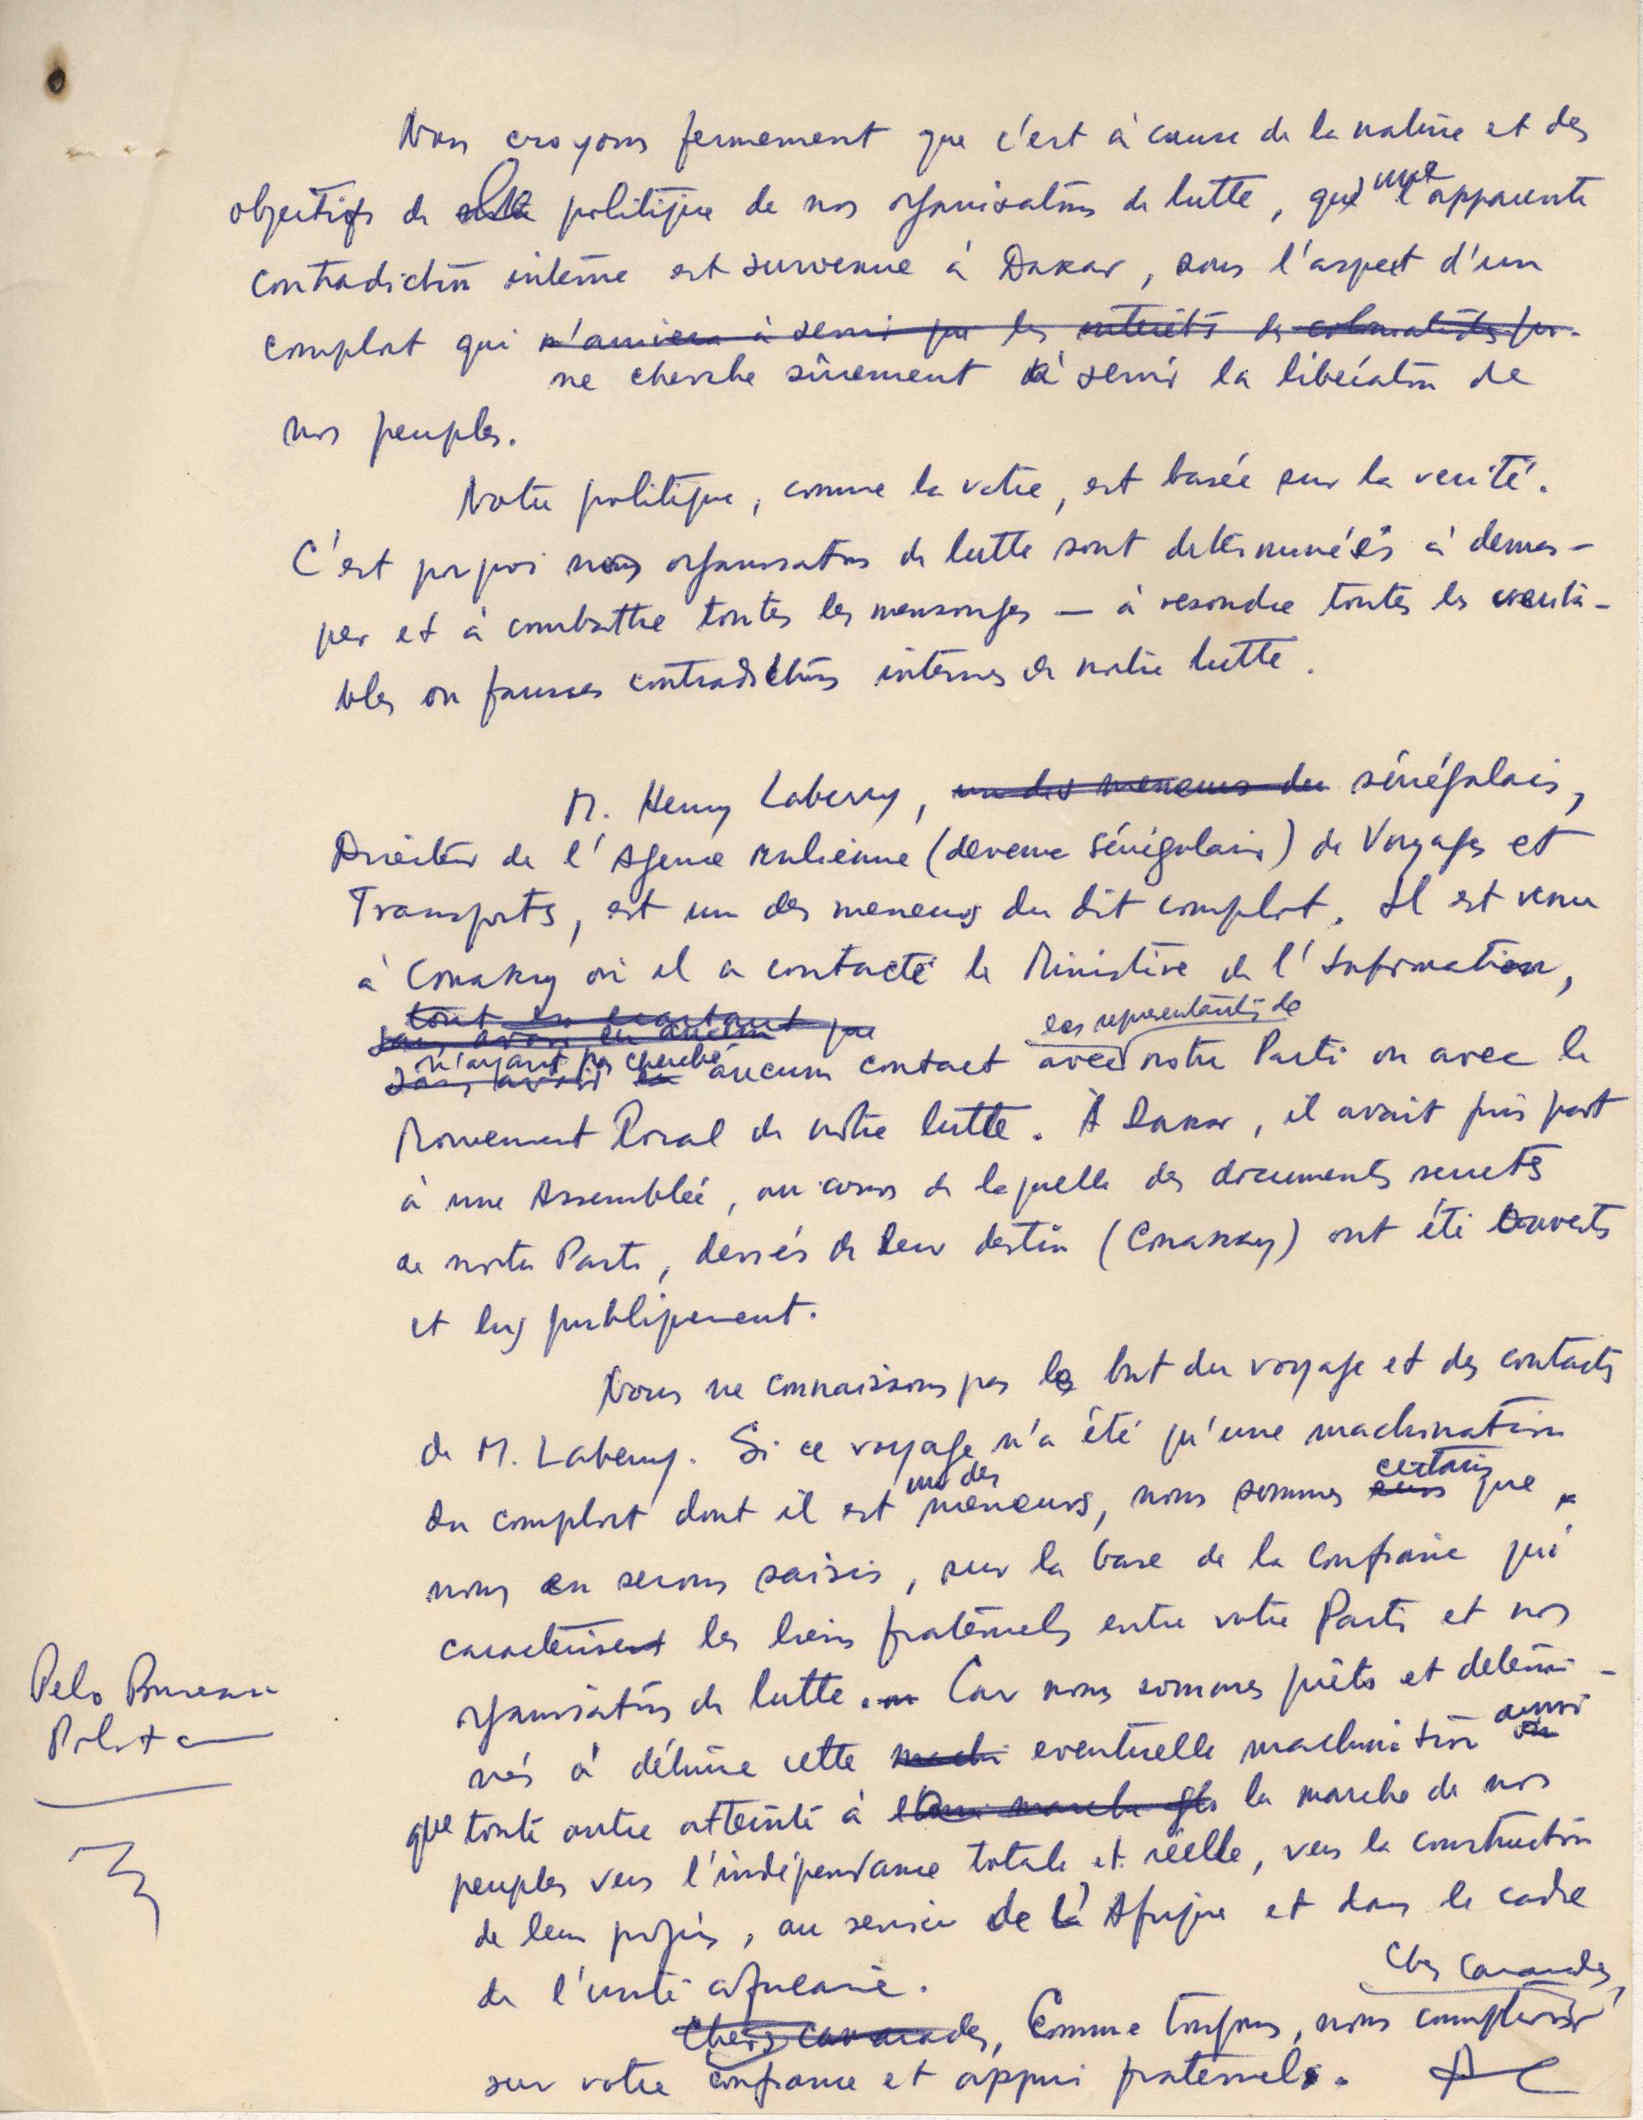 Nous croyons fermement que c'est à cause de la nature et des
objectifs de la politique de nos organisations de lutte, que une l'apparente
contradiction interne est survenue à Dakar, sous l'aspect d'un
complot qui n'arrivera à servir que les interêts des colonialistes por-
ne cherche sûrement à servir la libération de
nos peuples.
Notre politique, comme la votre, est basée sur la verité.
C'est pourquoi nos organisations de lutte sont determinées à demas-
quer et à combattre toutes les mensonges — à resoudre toutes les verita-
bles ou fausses contradictions internes de notre lutte.
M. Henry Labery, un des meneurs du sénégalais,
Directeur de l'Agence malienne (devenue sénégalaise) de Voyages et
Transports, est un des meneurs du dit complot. Il est venu
à Conakry où il a contacté le Ministère de l'Information,
tout en ecartant que
sans avoir eu aucun
n'ayant pas cherché les representants de
sans avoir eu aucun contact avec notre Parti ou avec le
Mouvement local de notre lutte. À Dakar, il avait pris part
à une Assemblée, au cours de laquelle des documents secrets
de notre Parti, deviés de leur destin (Conakry) ont été ouverts
et lus publiquement.
Nous ne connaissons pas le but du voyage et des contacts
de M. Labery. Si ce voyage n'a été qu'une machination
du complot dont il est un des meneurs, nous sommes certains que
nous en serons saisis, sur la base de la confiance qui
caracterisent les liens fraternels entre votre Parti et nos
organisations de lutte. Car nous sommes prêts et determi-
nés à détruire cette machi eventuelle machination aussi
que toute autre atteinte à la marche de nos
peuples vers l'indépendance totale et réelle, vers la construction
de leur progrès, au service de la Afrique et dans le cadre
de l'unité africaine.
Chers camarades,
Chers camarades, Comme toujours, nous comptons
sur votre confiance et appui fraternels.
Pelo Bureau
Polit